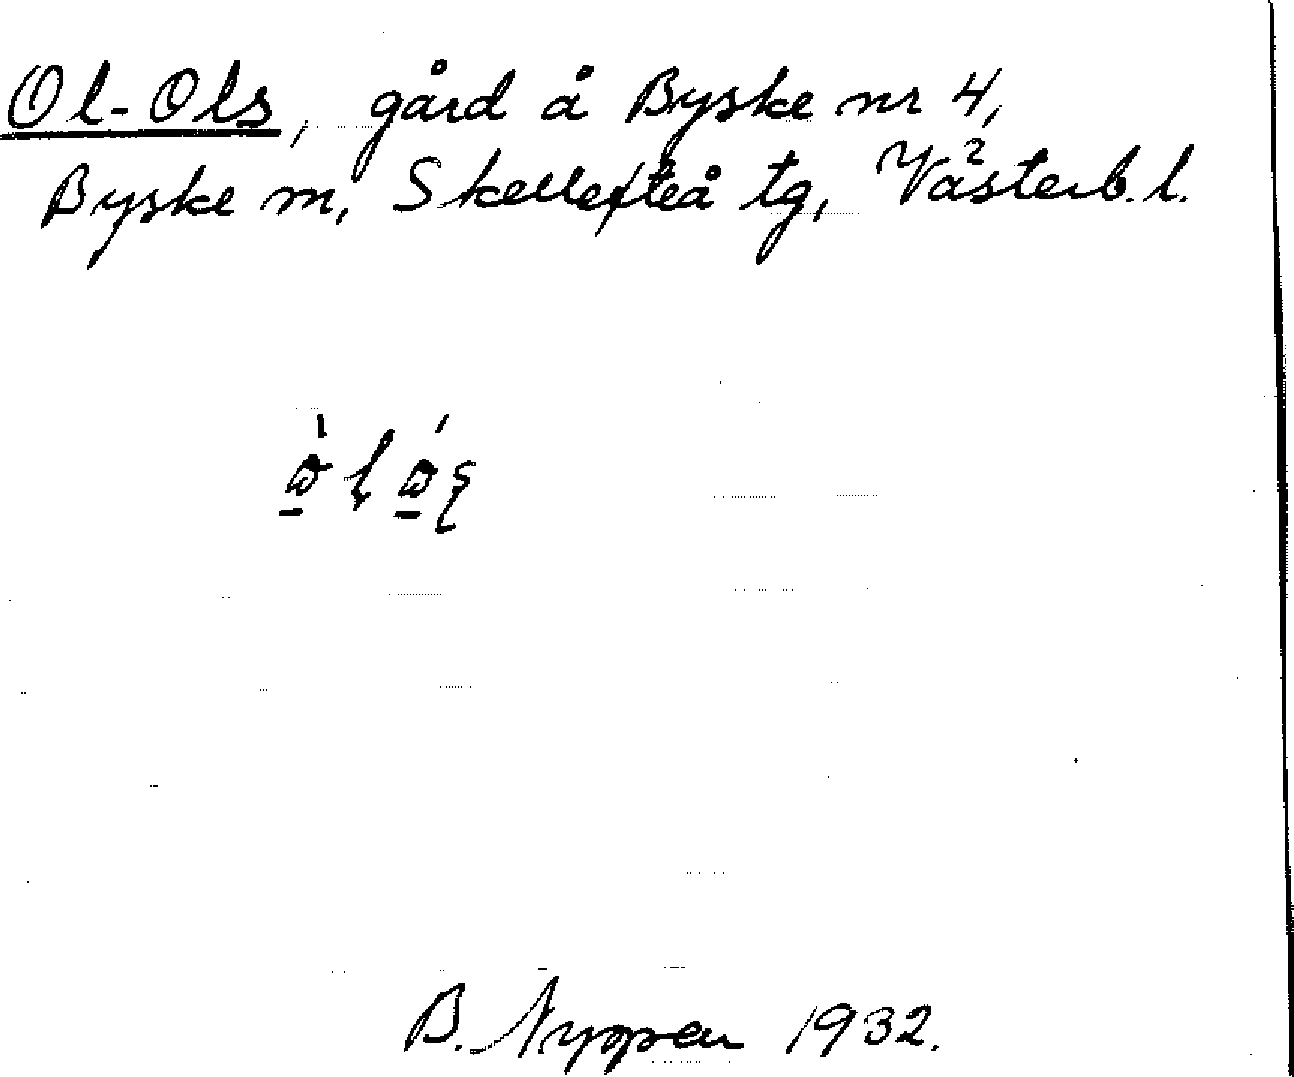 Ol-Ols, gård å Byske nr 4,
Byske m, Skellefteå tg, Västerb. l.
B. Nyppen 1932.